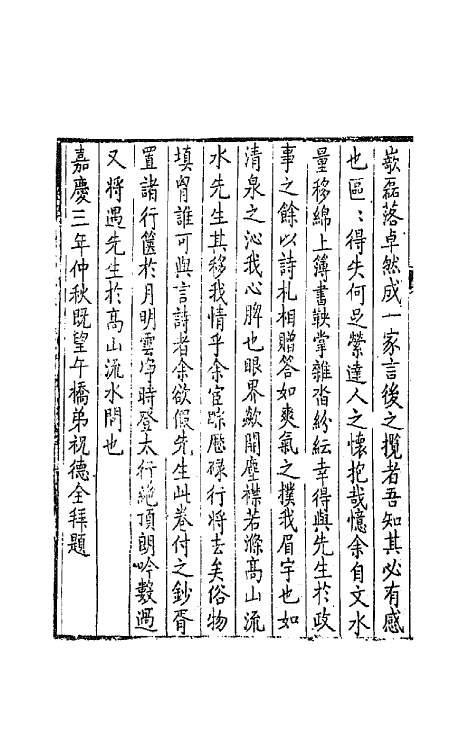 嶔磊落卓然成一家言後之攬者吾知其必有感
也區〻得失何足縈達人之懷抱哉憶余自文水
量移綿上簿書鞅掌雜沓紛紜幸得與先生於政
事之餘以詩札相贈答如爽氣之撲我眉宇也如
清泉之沁我心脾也眼界欻開塵襟若滌高山流
水先生其移我情乎余宦踪歷碌行將去矣俗物
填胷誰可與言詩者余欲假先生此卷付之鈔胥
置諸行篋於月明雲凈時登太行絶頂朗吟數過
又將遇先生於高山流水間也
嘉慶三年仲秋既望午橋弟祝德全拜題